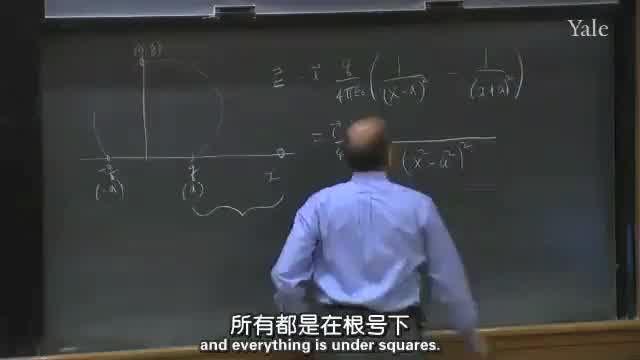 Yale
E = i q/4πε₀ ( 1/(x-a)² - 1/(x+a)² )
= i
4
(x² - a²)²
x
-q
q
(-a)
(a)
所有都是在根号下
and everything is under squares.